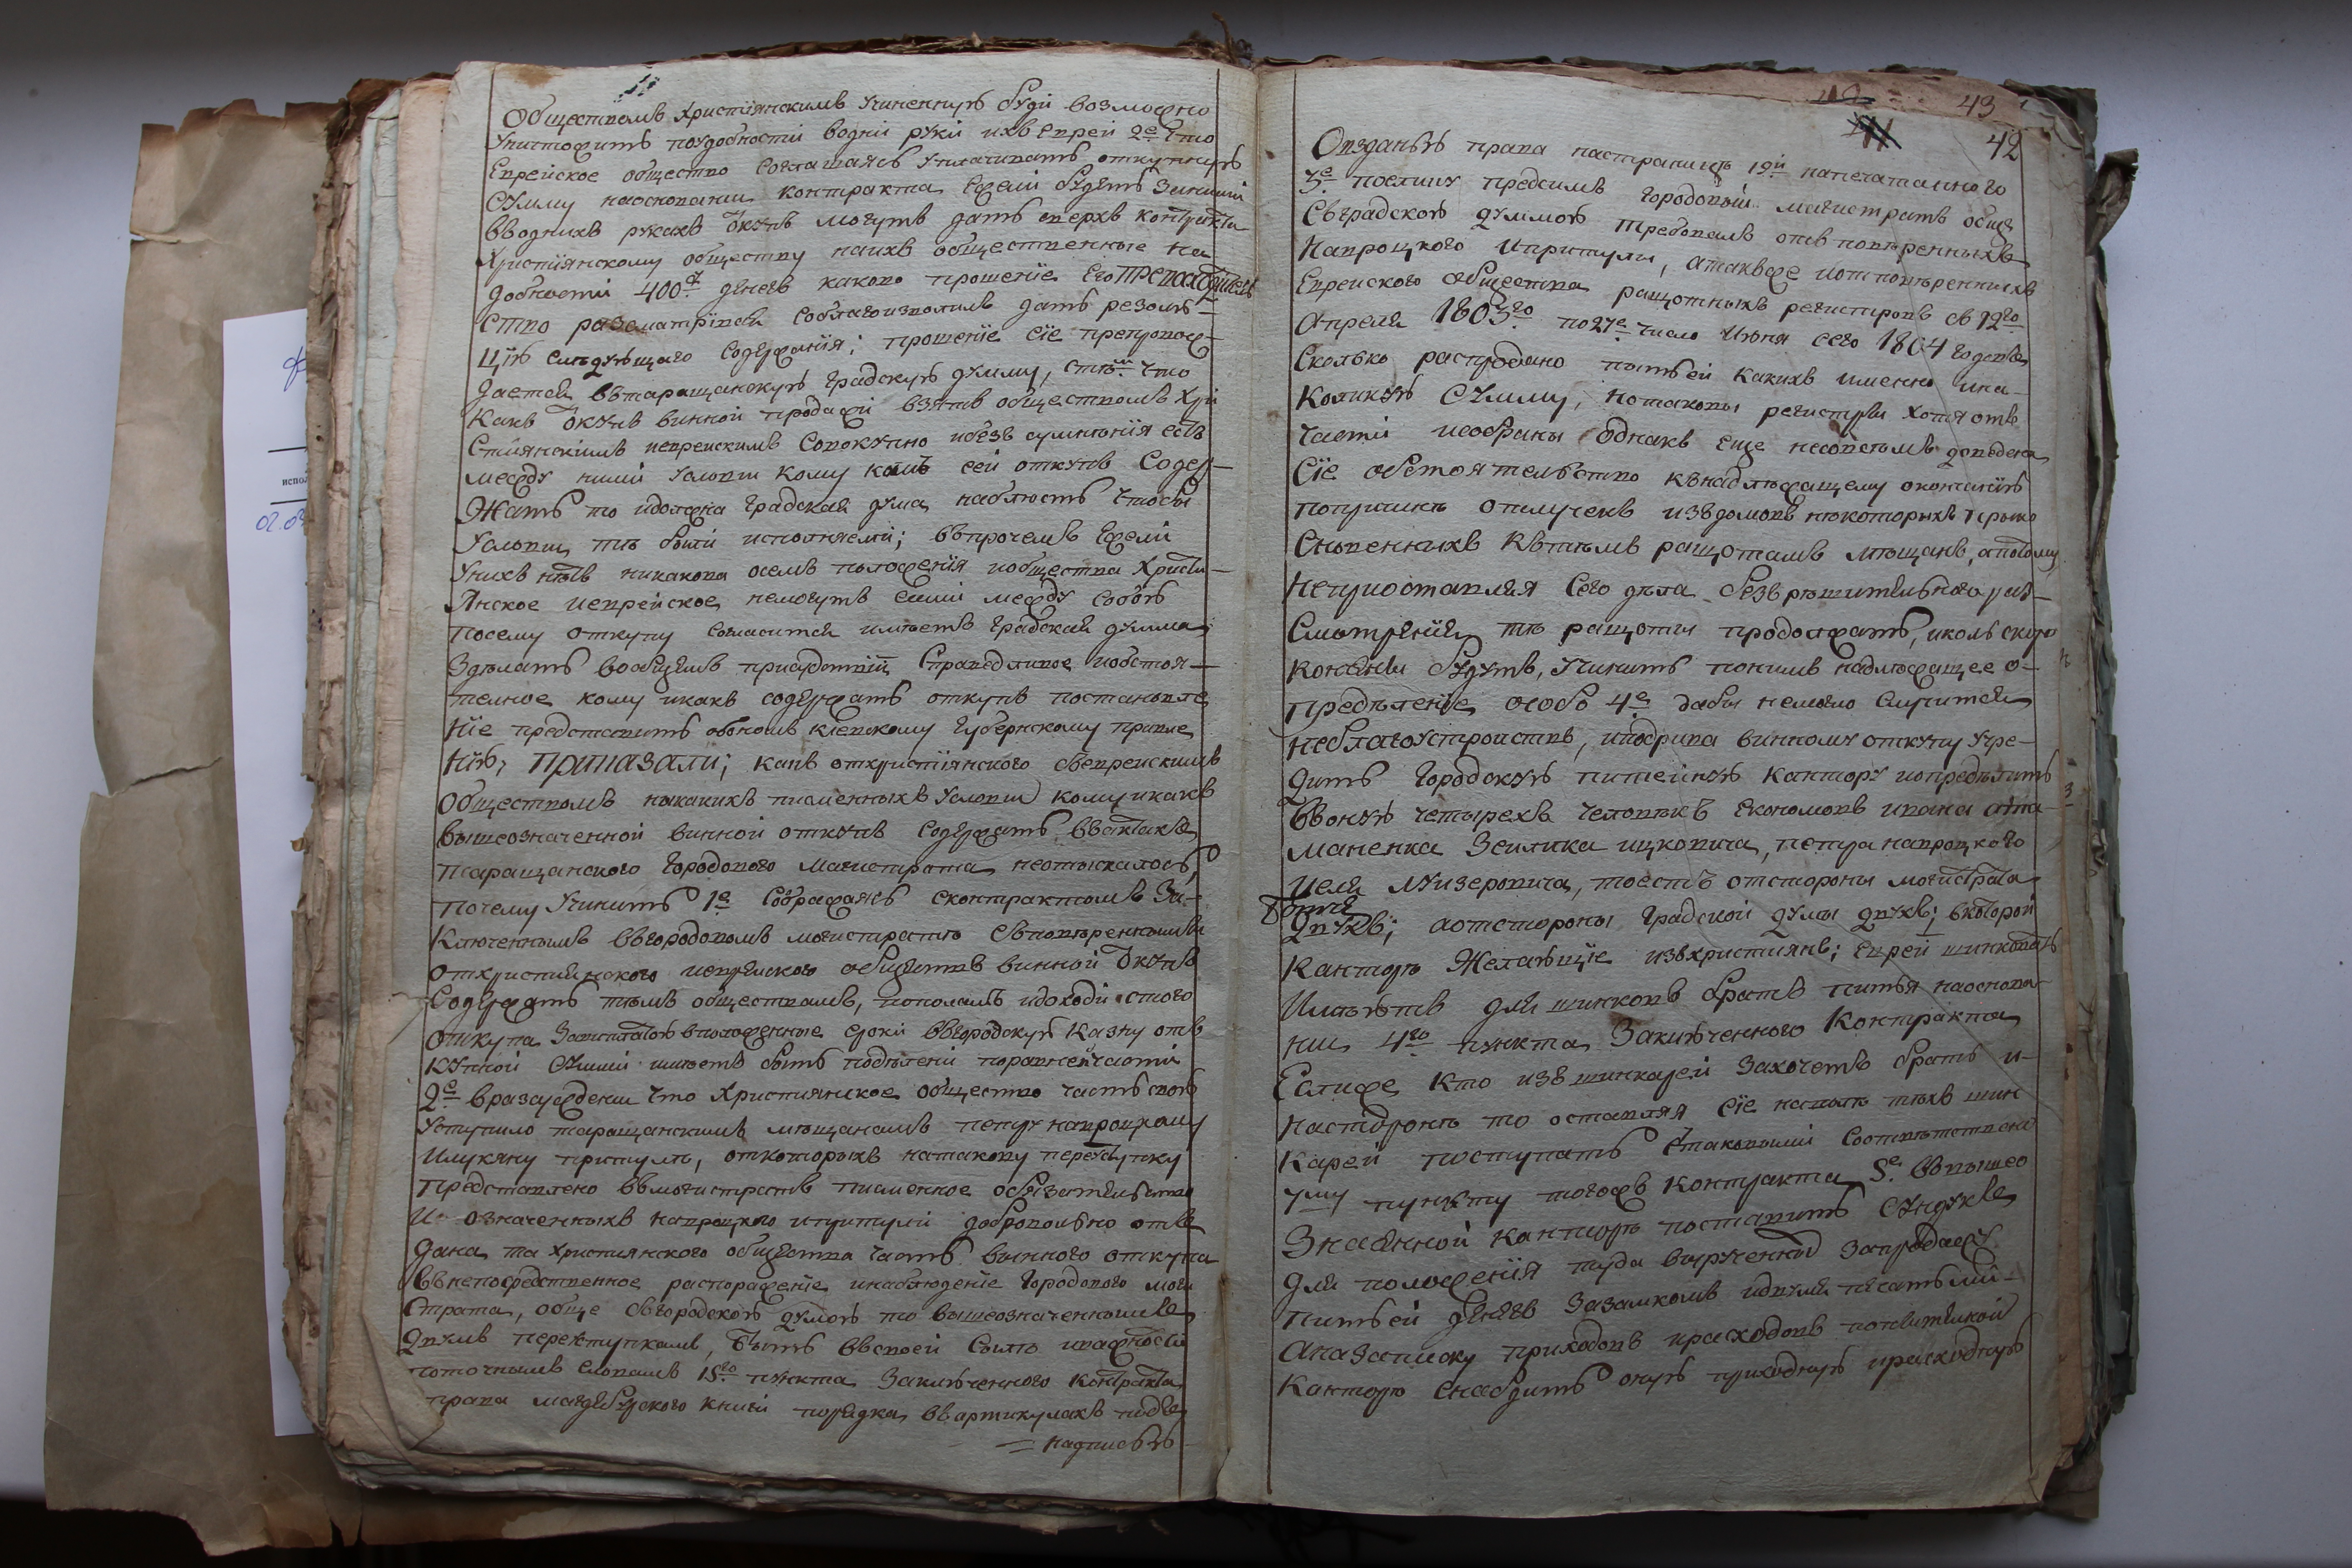 Обществомъ христіянскимъ учиненнуѣ буди возможно
Уничтожить поудобности водни руки ихъ Евреи 2е что
Еврейское общество соглашаясь уплачивать откупную
Сумму наосновании контракта Ежели будетъ Зинший
Вводнихъ рукахъ Откупъ могутъ дать сверхъ контракта
Христіянскому обществу наихъ общественные на
добности 400 денегъ каково прошеніе Его
ство разсматривая Соблаговолилъ дать резолю-
цію слѣдующаго Содержанія; прошеніе сіе препровож-
дается вътаращанскую градскую думу, что
какъ Откупъ винной продажи взятъ обществомъ Хри
стіянскимъ иеврейскимъ Совокупно ибезъ сумнѣнія есть
между ними условии кому какъ сей откупъ Содер-
жать то идолжна градская дума наблюсть чтобы
Условии тѣ были исполняеми; въпрочемъ Ежели
Унихъ нѣтъ никакова осемъ положенія иобщества Христі-
янское иеврейское немогутъ сами между собою
посему откупу согласится имѣетъ градская дума
Здѣлать вобщемъ присудствіи Справедливое иобстоя-
телное кому икакъ содержать откупъ постановле
ніе представить обономъ киевскому губернскому правле
нію, приказали; какъ отхристіянского съеврейскимъ
Обществомъ никакихъ писменныхъ условии кому икакъ
вышеозначенной винной откупъ Содержать въактахъ
таращанского городового магистрата неотыскалось,
почему учинить 1е Соображаясь сконтрактомъ За-
ключеннымъ вгородовомъ магистратѣ сповѣренными
отхристиянского иеврейского обществъ винной Откупъ
Содержать тѣмъ обществамъ, пополамъ идоходи стого
откупа Заплатою вположенные сроки вгородскую казну от
купной Суммы имѣетъ быть подѣлени поравнейчасти
2е вразсуждении что Християнское общество часть свою
уступило таращанскимъ мѣщанамъ петру напроцкому
илукяну притулѣ, откоторыхъ натакову переступку
представлено въмагистратъ писменное обязательство
И означенныхъ напроцкого ипритули доброволно от
дана та Християнского общества часть винного откупа
Въ непосредственное распоряженіе инаблюденіе городового маги
страта, обще сгородскою думою то вышеозначеннымъ
двумъ переступкамъ, быть въсвоей Силѣ иважности
поточнымъ словамъ 15го пункта Заключенного контракта
права магдебурского книги порядка въартикулахъ подъ
= надписью
43
42
Оизданью права настраницѣ 19й напечатанного
3е поелику предсимъ городовый магистратъ обще
Съградскою думмою требовалъ отъ повѣренныхъ
Напроцкого ипритулы, атакъже иотповѣренныхъ
Еврейского общества ращотныхъ регистровъ съ 12го
Апреля 1803го по 27е число Июня сего 1804 года
Сколько распродано питьей какихъ именно ина-
Коликую Сумму, потаковы регистры хотя отъ
части исобраны однакъ еще несовсемъ доведена
Сіе обстоятельство кънадлѣжащему окончанію
попричинѣ отлучекъ изъдомовъ нѣкоторыхъ прико
сновенныхъ Кътемъ ращотамъ мѣщанъ, апотому
Неприостанвля Сего дѣла безърѣшительного раз-
Смотренія тѣ ращоты продолжать, иколь скоро
кончени будутъ, учинить понимъ надлежащее о-
предѣленіе особо 4е дабы немогло случится
неблагоустроиствъ, иподрива винному откупу учре-
дить городскую питейную кантору иопредѣлить
Въоную четырехъ человѣкъ Економовъ ивана ата-
маненка Зейлика ицковича, петра напроцкого
Иеля лузеровича, тоесть отстороны магистрата
двухъ; аотстороны градской думы двухъ; вкоторой
Канторѣ Желающіе изъхристиянъ; Еврей шинковать
Имѣютъ для шинковъ брать питья наоснова-
нии 4го пункта Заключенного Контракта
Еслиже кто изъ шинкарей Захочетъ брать и-
насторонѣ то оставляя сіе наволѣ тѣхъ шин
карей поступать стаковыми Соотвѣтственно
7му пункту тогожъ контракта 5е. Въвышео
Значенной канторѣ поставить Сундукъ
для положенія туда вырученныхъ Запродажу
питьей денегъ Зазамкомъ идвумя печатьми-
Аназаписку приходовъ ирасходовъ попитейной
Канторѣ Снабдить оную приходную ирасходную